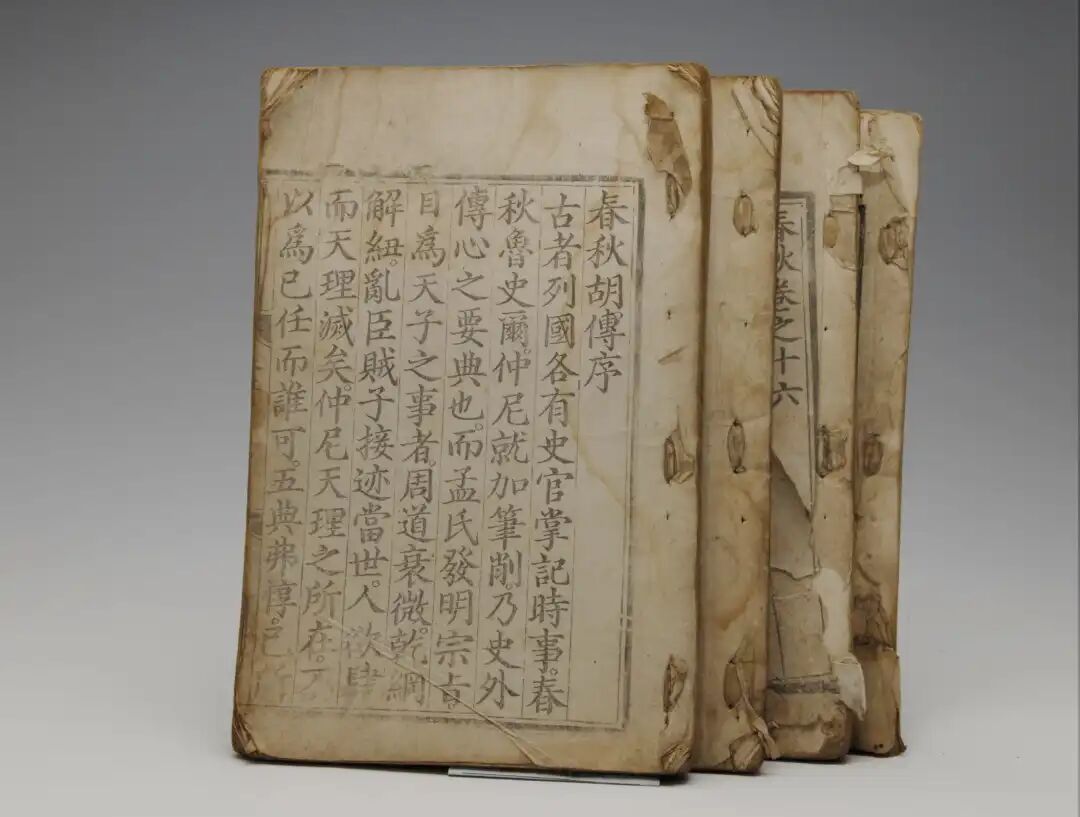 春秋胡傳序
古者列國各有史官掌記時事。春
秋魯史爾。仲尼就加筆削。乃史外
傳心之要典也。而孟氏發明宗旨
目爲天子之事者。周道衰微。乾綱
解紐。亂臣賊子接迹當世。人欲肆
而天理滅矣。仲尼天理之所在。不
以爲己任而誰可。五典弗惇。己所
春秋卷之十六